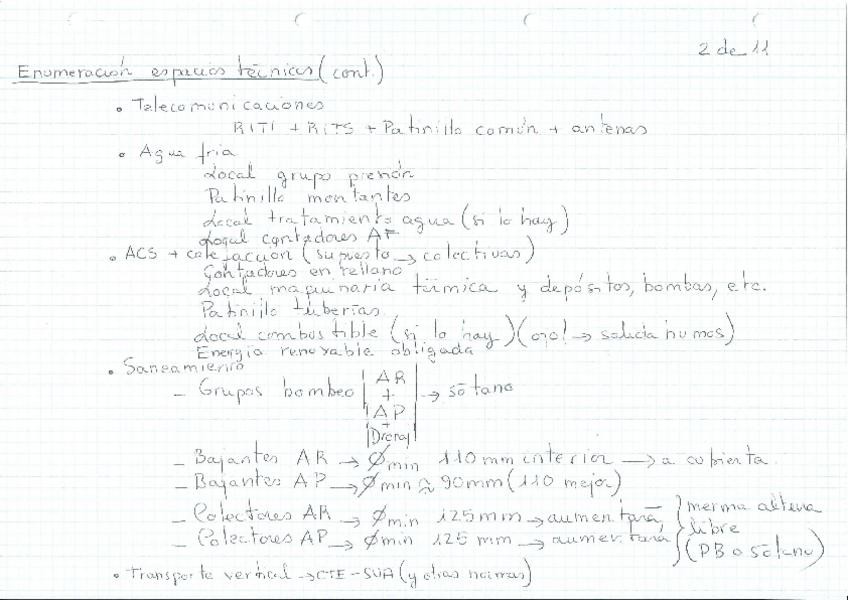 2 de 11
Enumeración espacios técnicos (cont.)
• Telecomunicaciones
RITI + RITS + Patinillo común + antenas
• Agua fría
Local grupo presión
Patinillo montantes
Local tratamiento agua (si lo hay)
Local contadores AF
• ACS + calefacción (supuesto → colectivas)
Contadores en rellano
Local maquinaria térmica y depósitos, bombas, etc.
Patinillo tuberías
Local combustible (si lo hay) (ojo! → salida humos)
Energía renovable obligada
• Saneamiento
- Grupos bombeo | AR + AP + Drenaj | → sótano
- Bajantes AR → Ø min 110 mm interior → a cubierta
- Bajantes AP → Ø min ≈ 90mm (110 mejor)
- Colectores AR → Ø min 125 mm → aumentará,
- Colectores AP → Ø min 125 mm → aumentará
} merma altura
libre
(PB o sótano)
• Transporte vertical → CTE-SUA (y otras normas)